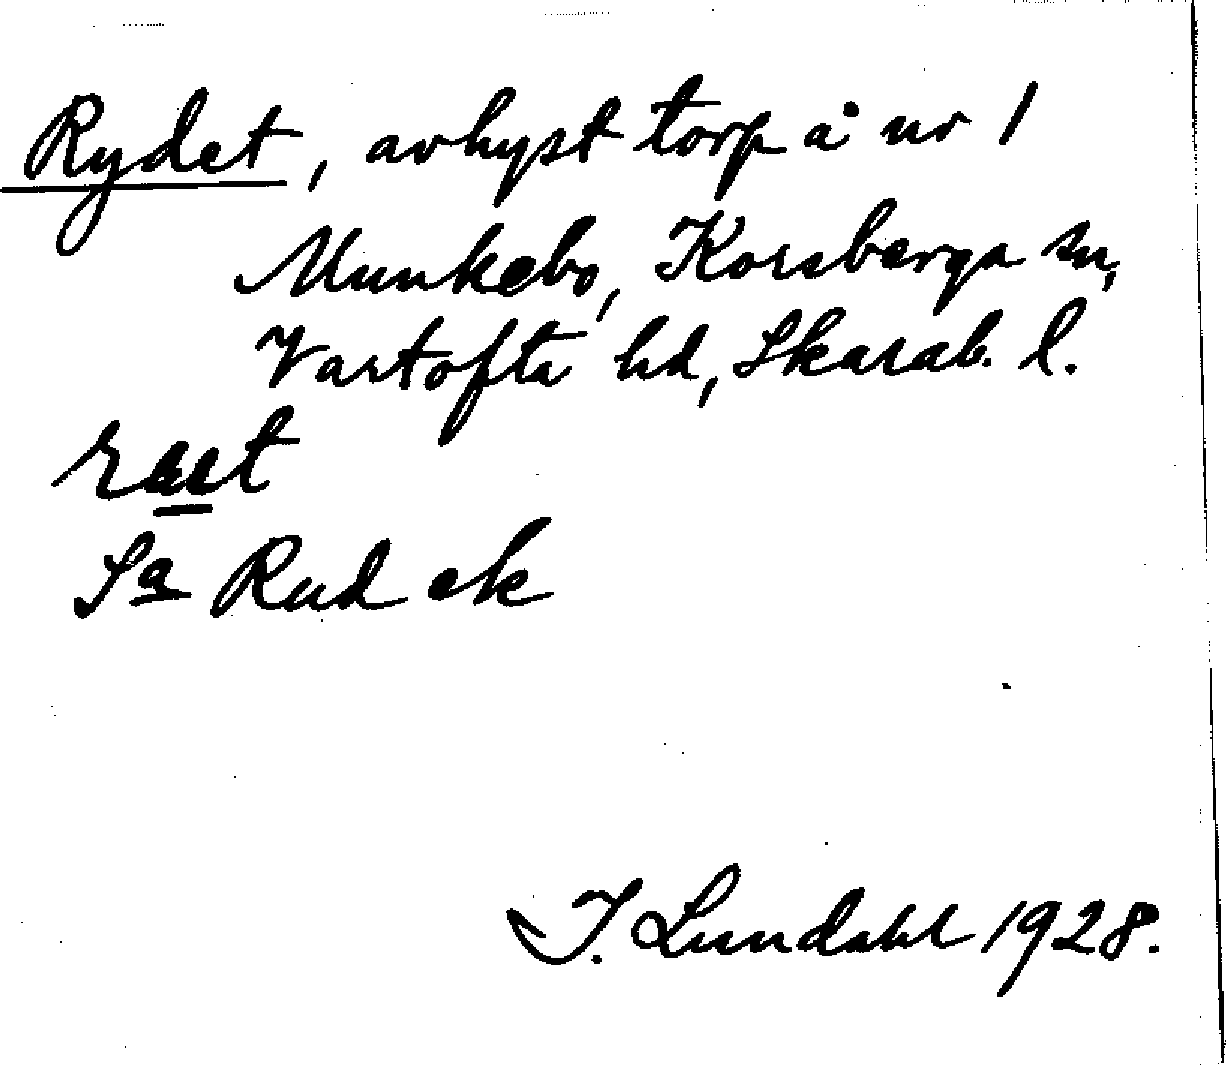 Rydet, avhyst torp å nr 1
Munkebo, Korsberga sn,
Vartofta hd, Skarab. l.
Sa Rud ek
I. Lundahl 1928.